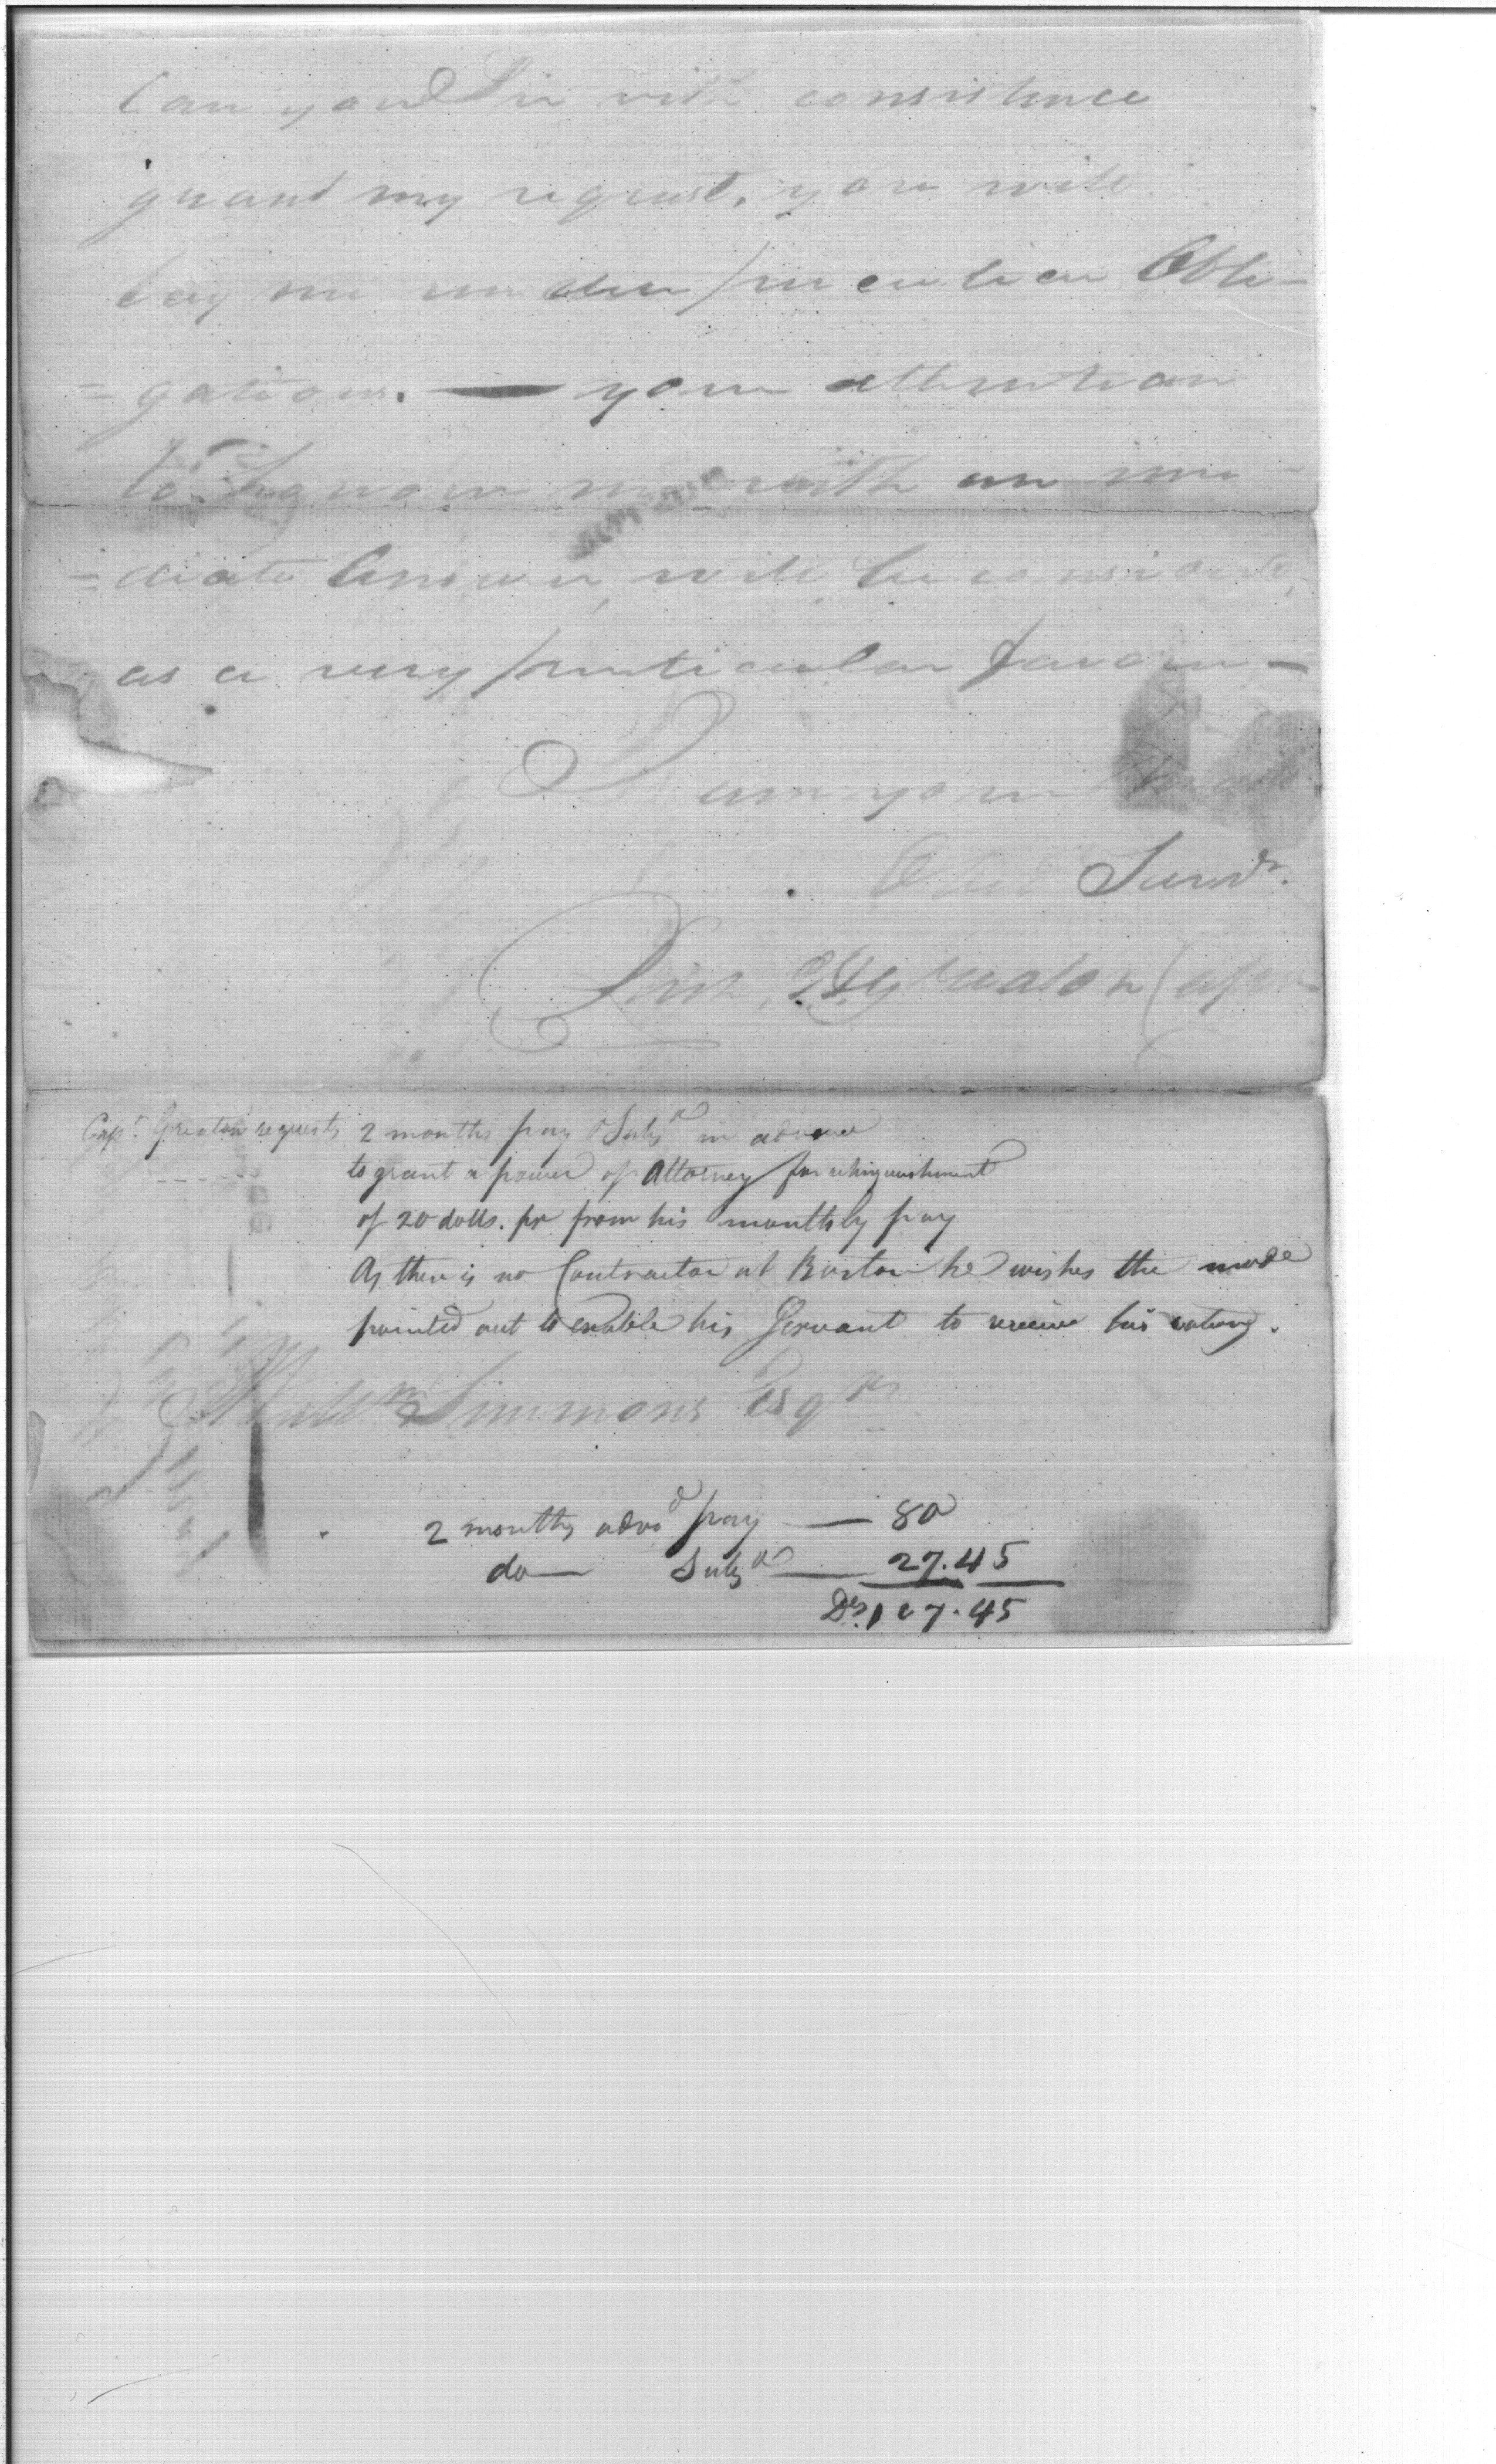 Can you Sir with consistence
grant my request, you will
lay me under peculiar Obli-
=gations. — your attention
to honour me with an ime-
=diate Answer, will be considd,
as a very particular favour —
I am your
Obed Servt.
Rich. H. Greaton Capt
Capt. Greaton requests 2 months pay & Subse in advance
to grant a power of Attorney for relinquishment
of 20 dolls. pr from his monthly pay
As there is no Contractor at Boston he wishes the mode
pointed out to enable his Servant to receive his rations.
Wm Simmons Esqr
2 months advd pay — 80
do — Subse — 27.45
Ds. 107.45